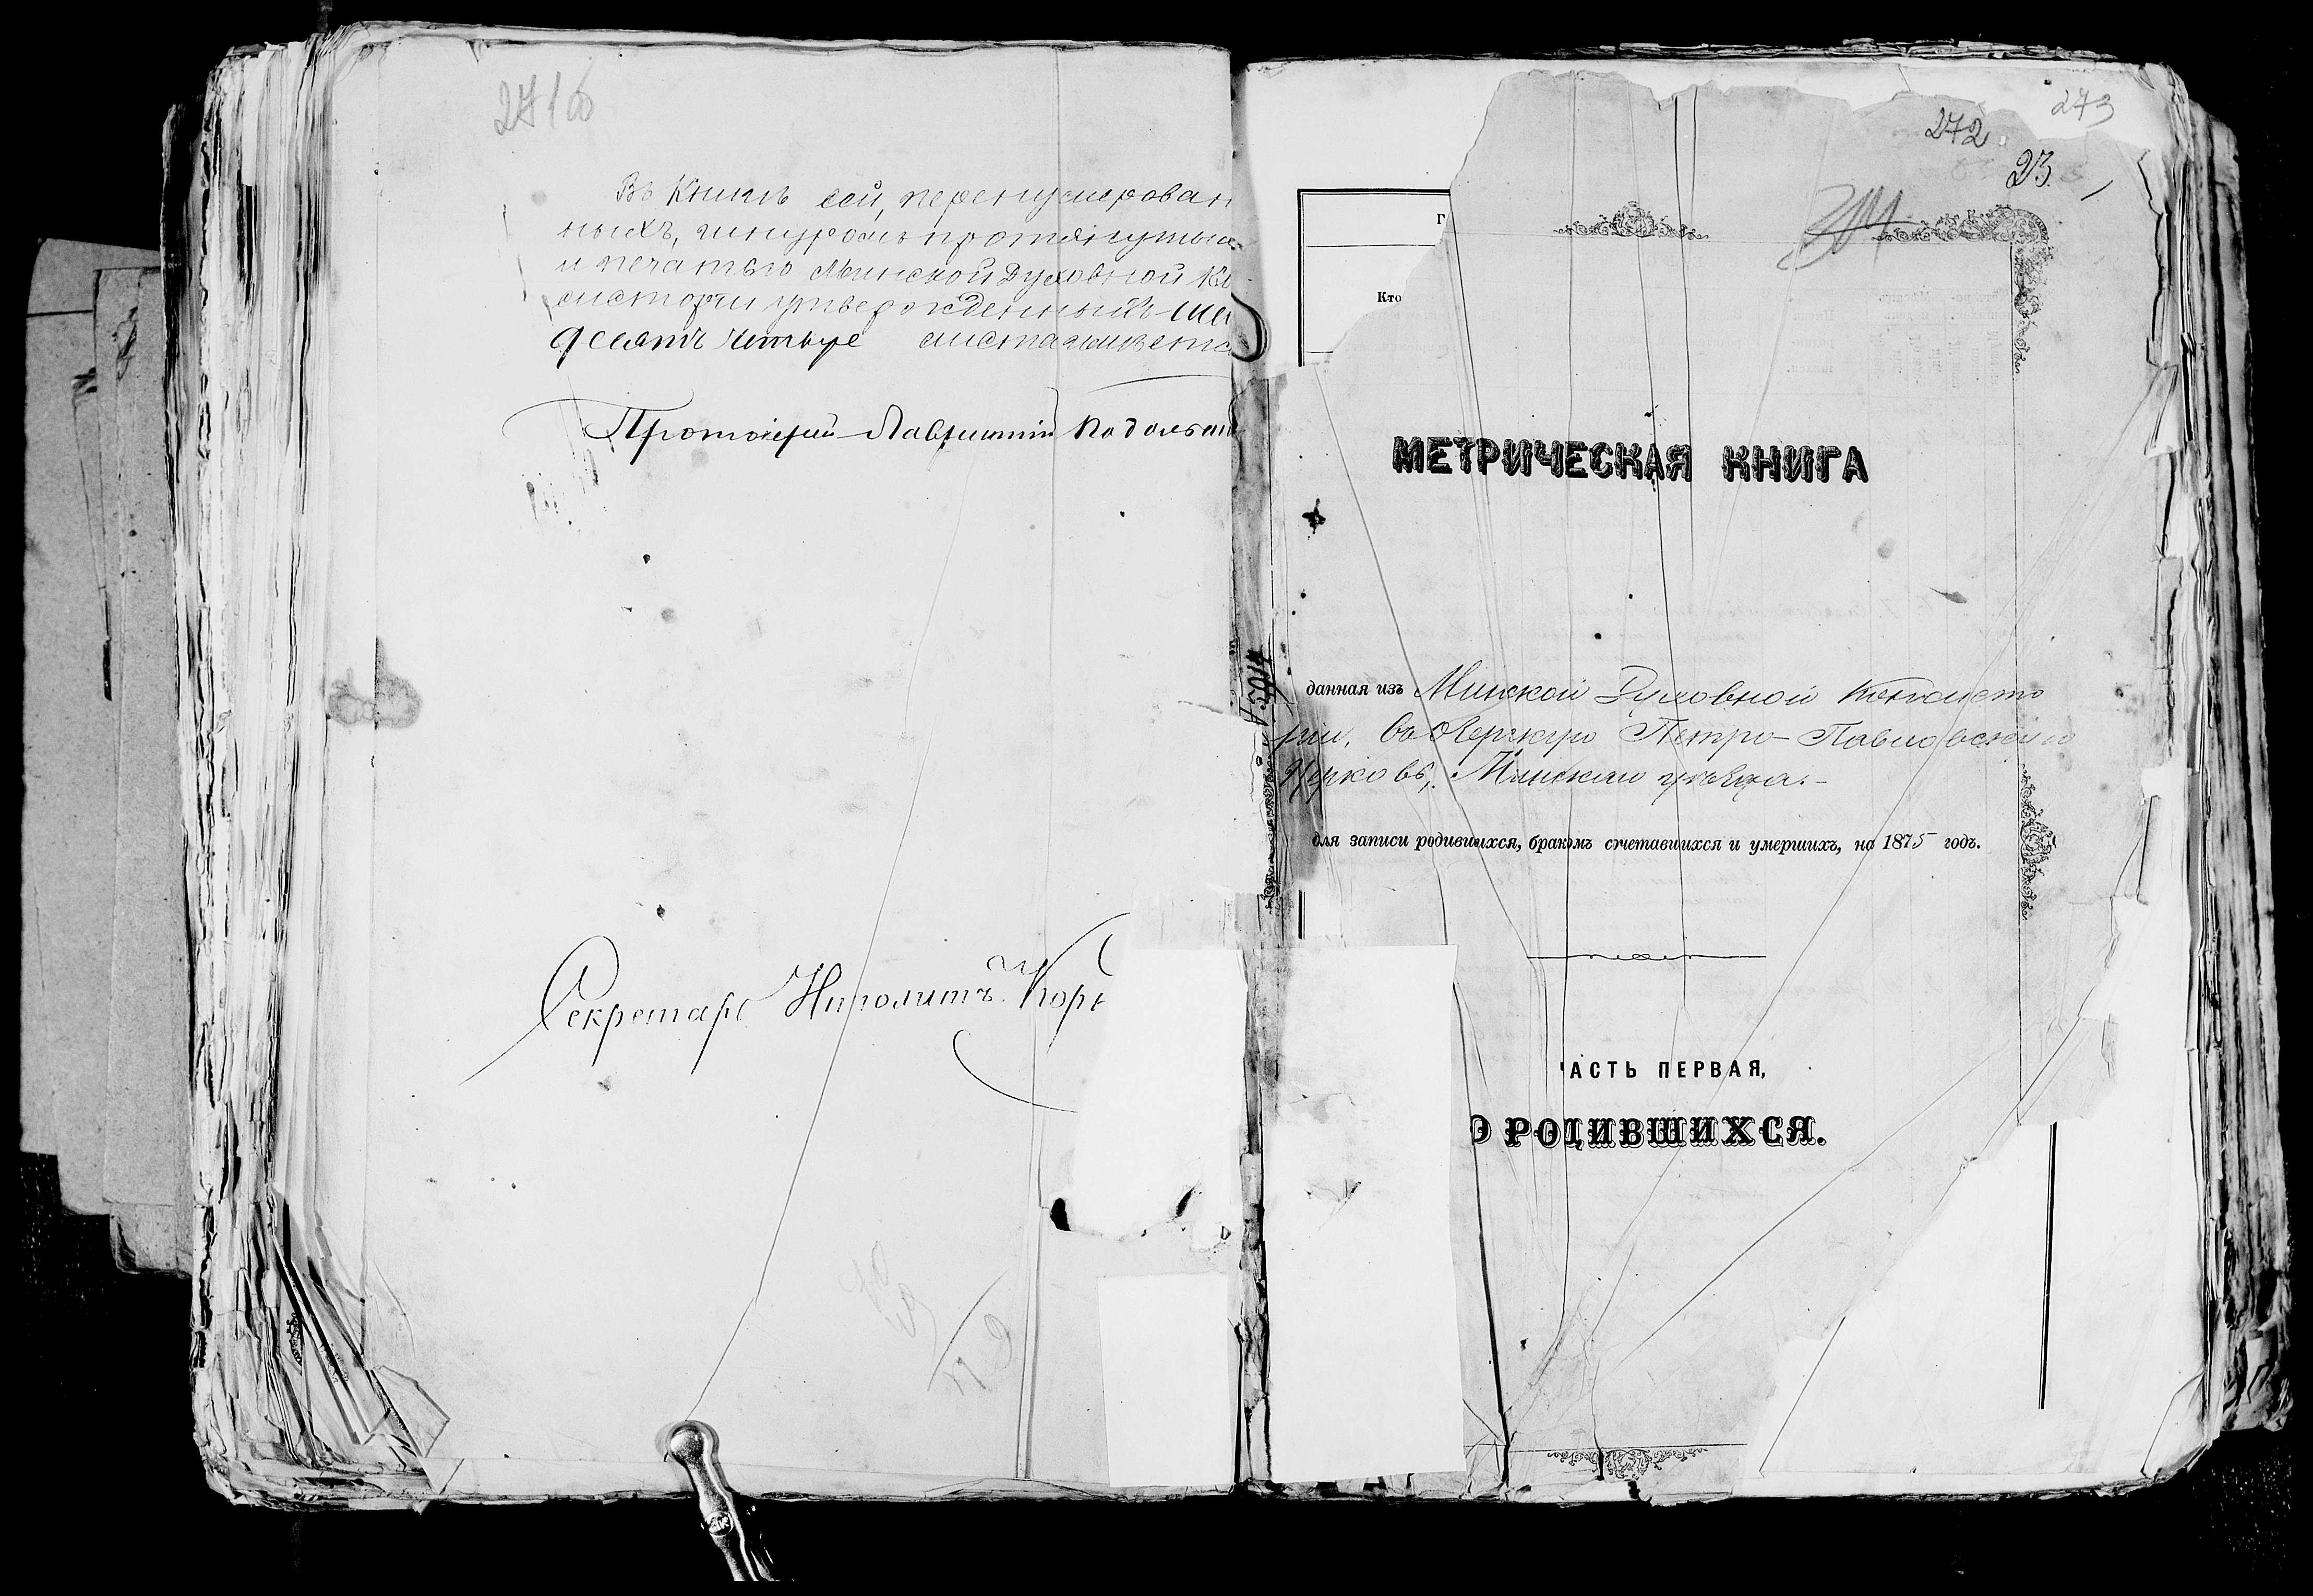 271б
Въ Книгѣ сей, перенумерован
ныхъ, шнуромъ протянутых
и печатью Минской Духовной Ко
систоріи утвержденныхъ шес
десятъ четыре листа имѣетс
Протоіерей Лаврентій Подольск
Секретарь Ипполитъ Кор
273
272
23.
Г
Кто
МЕТРИЧЕСКАЯ КНИГА
данная изъ Минской Духовной Консисто
ріи, въ Петро-Павловскую
Церковь, Минскаго уѣзда.-
для записи родившихся, бракомъ сочетавшихся и умершихъ, на 1875 годъ.
АСТЬ ПЕРВАЯ,
О РОДИВШИХСЯ.